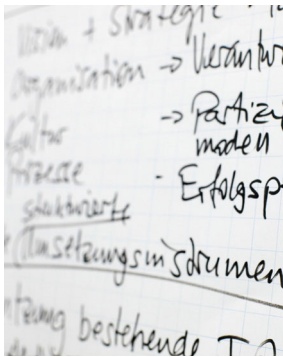 Vision + Strategie
Organisation -> Verantw
Kultur -> Partizi
moden
Prozesse - Erfolgsp
strukturierte
Umsetzungsinstrumen
tzung bestehende